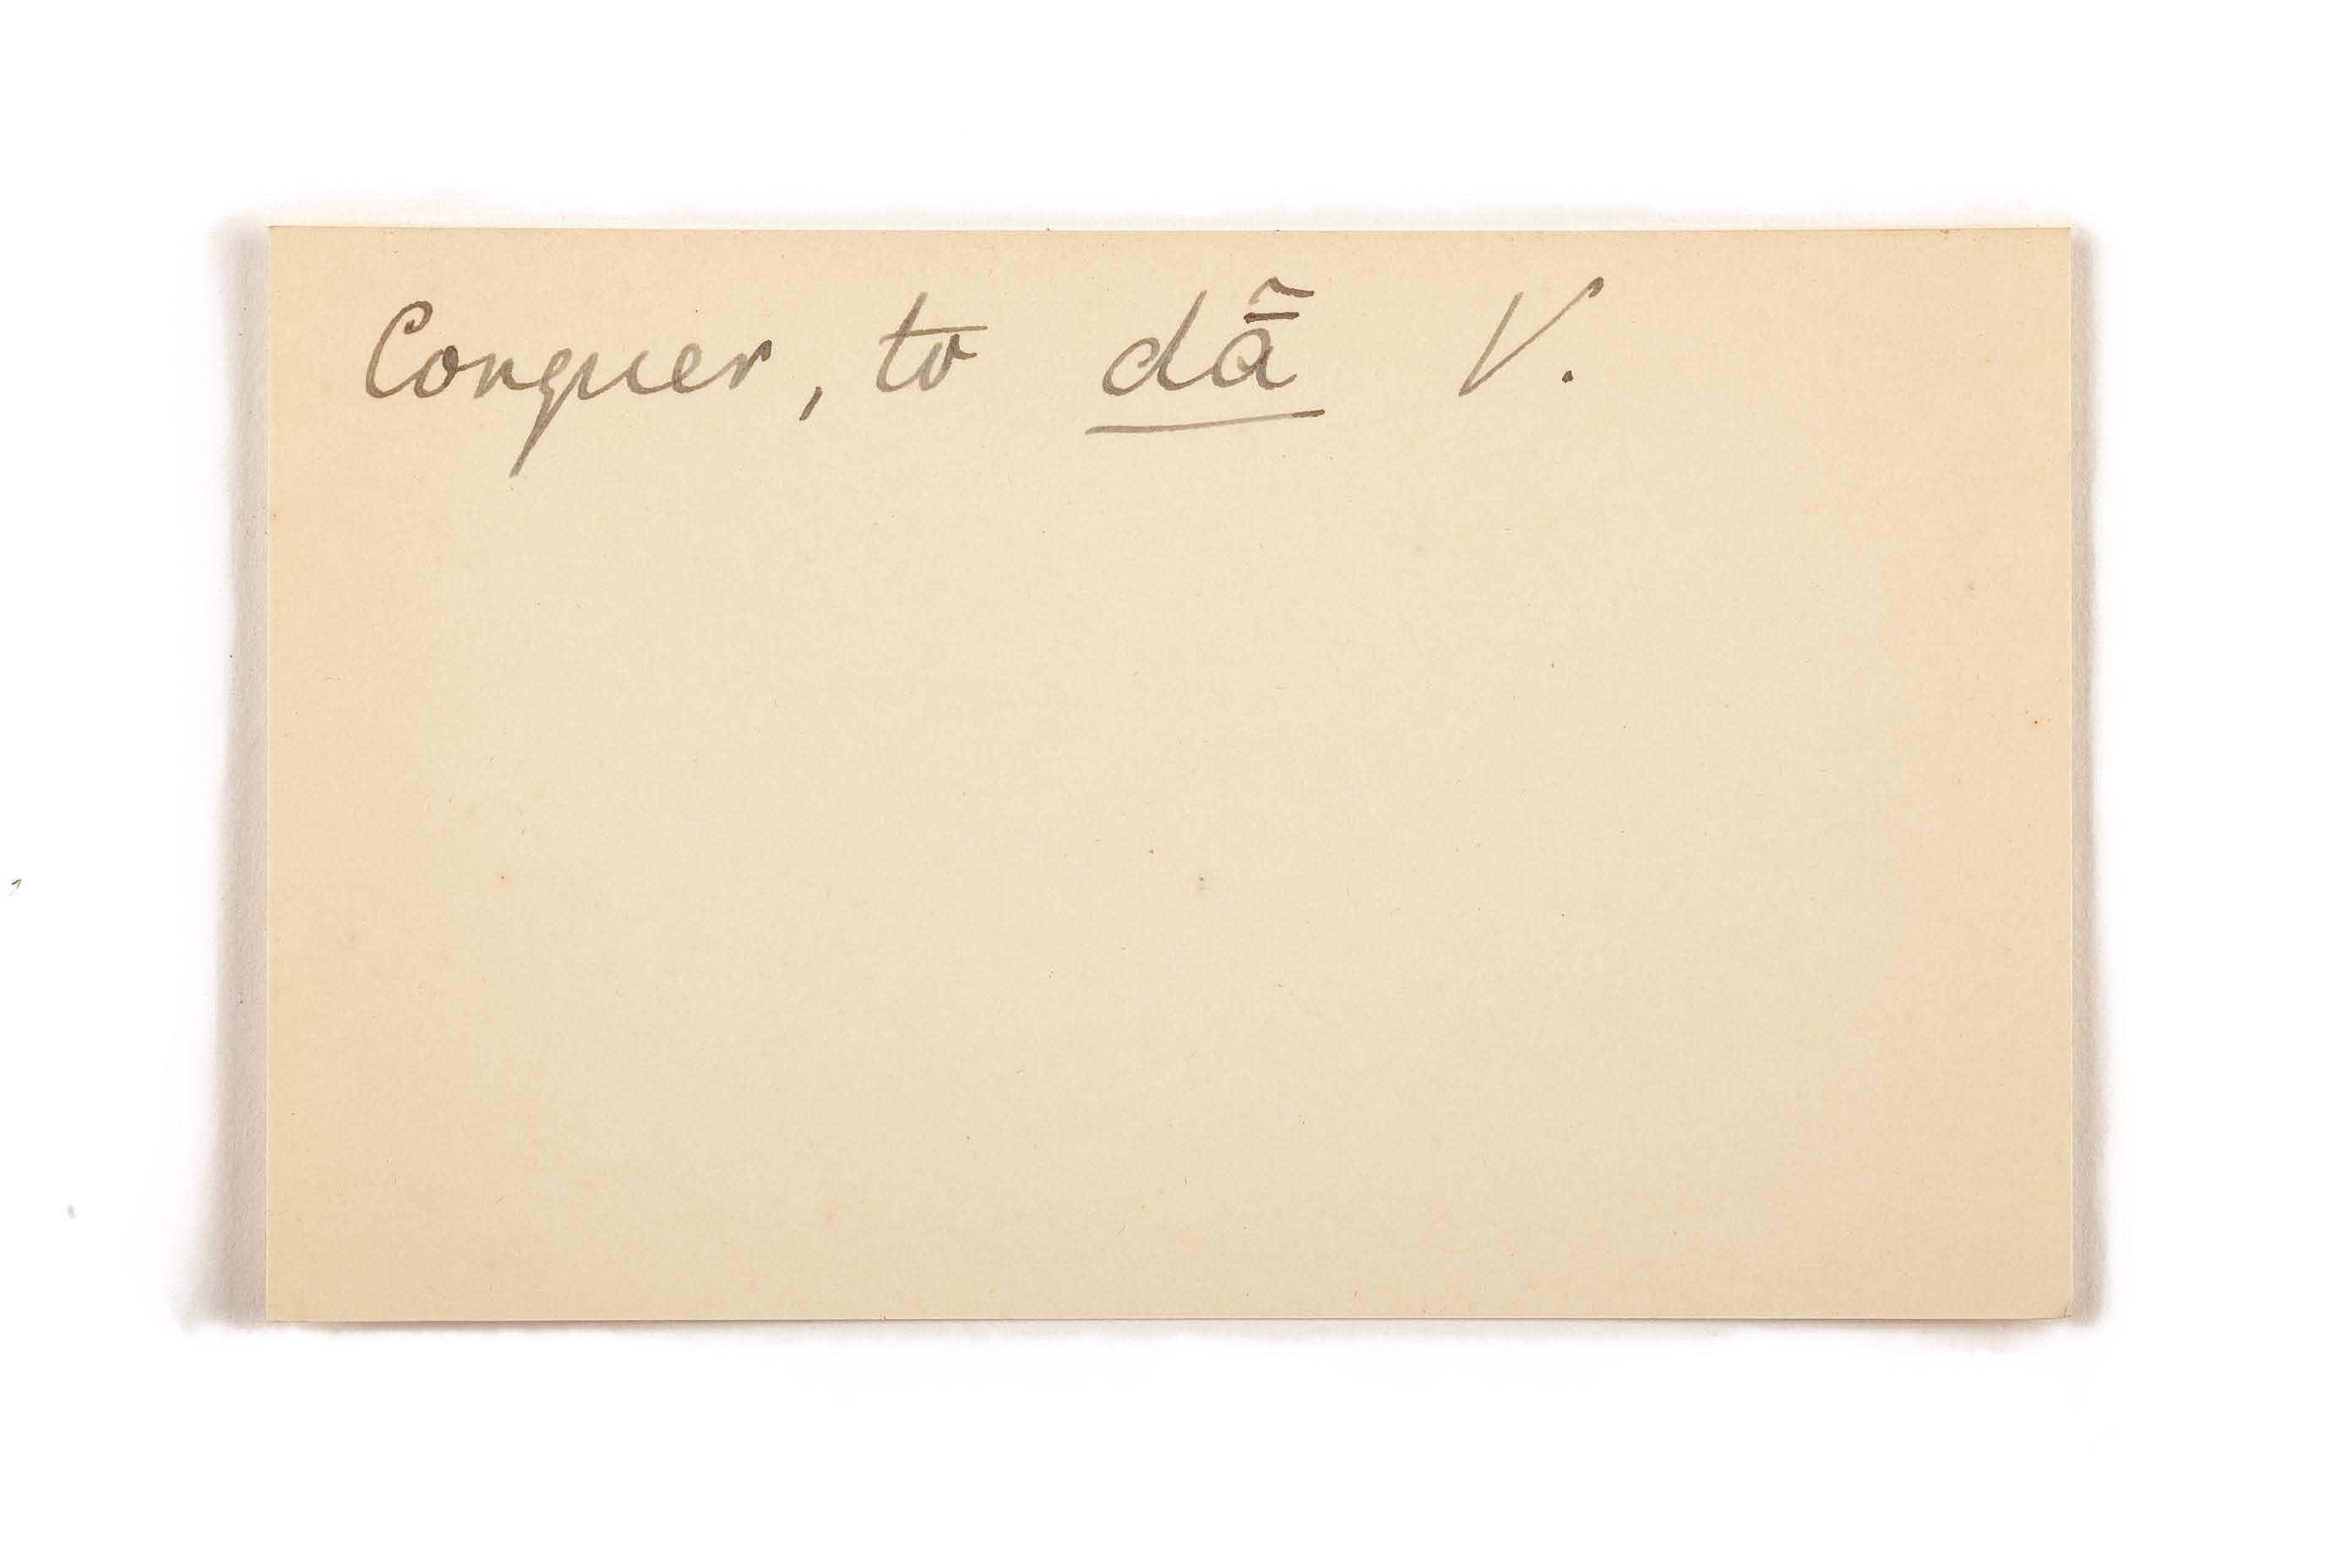 Conquer, to dā̃ V.